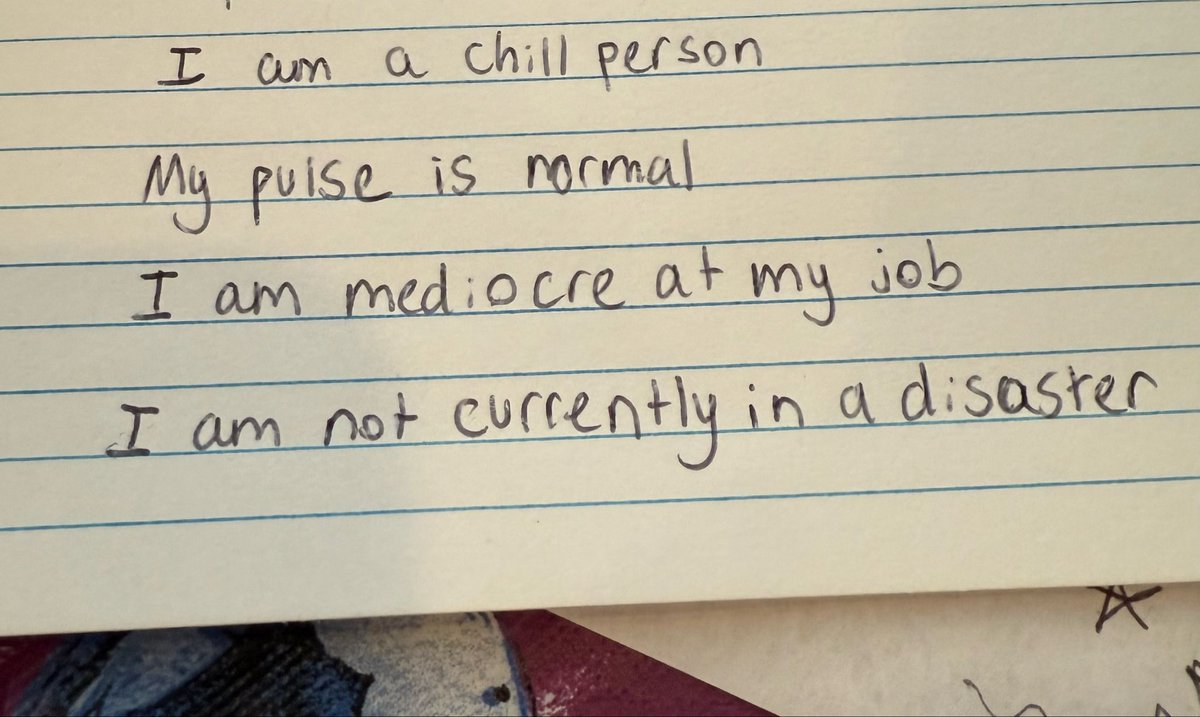 I am a chill person
My pulse is normal
I am mediocre at my job
I am not currently in a disaster